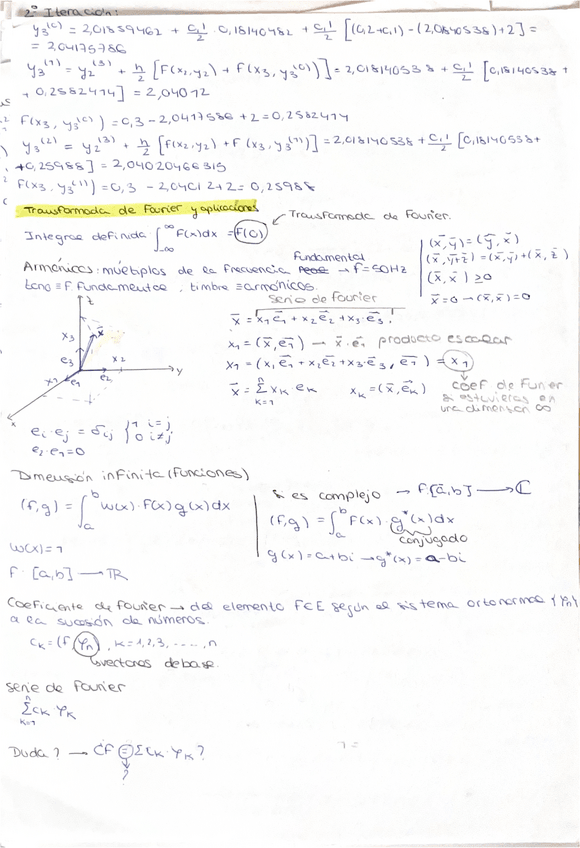 2ª Iteración:
y₃⁽⁰⁾ = 2,01859462 + 0,1/2 · 0,18140482 + 0,1/2 [(0,2+0,1) - (2,0840538)+2] =
= 2,04175786
y₃⁽¹⁾ = y₂⁽³⁾ + h/2 [F(x₂,y₂) + F(x₃,y₃⁽⁰⁾)] = 2,018140538 + 0,1/2 [0,18140538 +
+ 0,2582414] = 2,04012
F(x₃, y₃⁽⁰⁾) = 0,3 - 2,0417586 + 2 = 0,2582414
y₃⁽²⁾ = y₂⁽³⁾ + h/2 [F(x₂,y₂) + F(x₃,y₃⁽¹⁾)] = 2,018140538 + 0,1/2 [0,18140538+
+0,25988] = 2,04020466315
F(x₃, y₃⁽¹⁾) = 0,3 - 2,04012+2 = 0,25988
Transformada de Fourier y aplicaciones
Transformada de Fourier.
Integral definida ∫_{-∞}^{∞} F(x)dx = F(0)
Fundamental
Armónicos: múltiplos de la frecuencia → f=50Hz
tono ≡ F. Fundamental, timbre ≡ armónicos.
(x̄,ȳ) = (ȳ,x̄)
(x̄,ȳ+z̄) = (x̄,ȳ) + (x̄,z̄)
(x̄,x̄) ≥ 0
x̄=0 → (x̄,x̄)=0
serie de Fourier
x̄ = x₁ē₁ + x₂ē₂ + x₃·ē₃
x₁ = (x̄,ē₁) → x̄·ē₁ producto escalar
x₁ = (x₁ē₁ + x₂ē₂ + x₃·ē₃, ē₁) = x₁
x̄ = Σ_{k=1}^{n} x_k · e_k x_k = (x̄,ē_k)
coef de Fourier
si estuvieras en
una dimension ∞
z
x₃
x̄
e₃
x₁
e₁
e₂
x₂
y
x
e_i · e_j = δ_ij { 1 i=j
0 i≠j
e₂·e₁=0
Dimensión infinita (funciones)
(f,g) = ∫_a^b w(x)·f(x)g(x)dx
w(x)=1
f: [a,b] → ℝ
Si es complejo → f:[a,b] → ℂ
(f,g) = ∫_a^b F(x)·g*(x)dx
conjugado
g(x)=a+bi → g*(x) = a-bi
Coeficiente de Fourier → del elemento F∈E según el sistema ortonormal {φn}
a la sucesión de números.
c_k = (f,φn), k=1,2,3,....,n
vectores de base.
serie de Fourier
Σ_{k=1}^{n} c_k · φ_k
Duda? → ¿f = Σ c_k · φ_k?
?